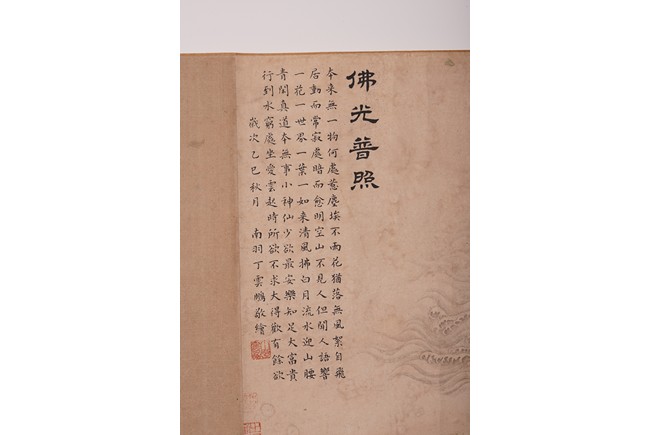 佛光普照
本來無一物何處惹塵埃不雨花猶落無風絮自飛
居動而常寂處暗而愈明空山不見人但聞人語響
一花一世界一葉一如來清風拂白月流水迎山腰
青閑真道本無事小神仙少欲最安樂知足大富貴
行到水窮處坐愛雲起時所欲不求大得歡有餘欲
歲次乙巳秋月 南羽丁雲鵬敬繪